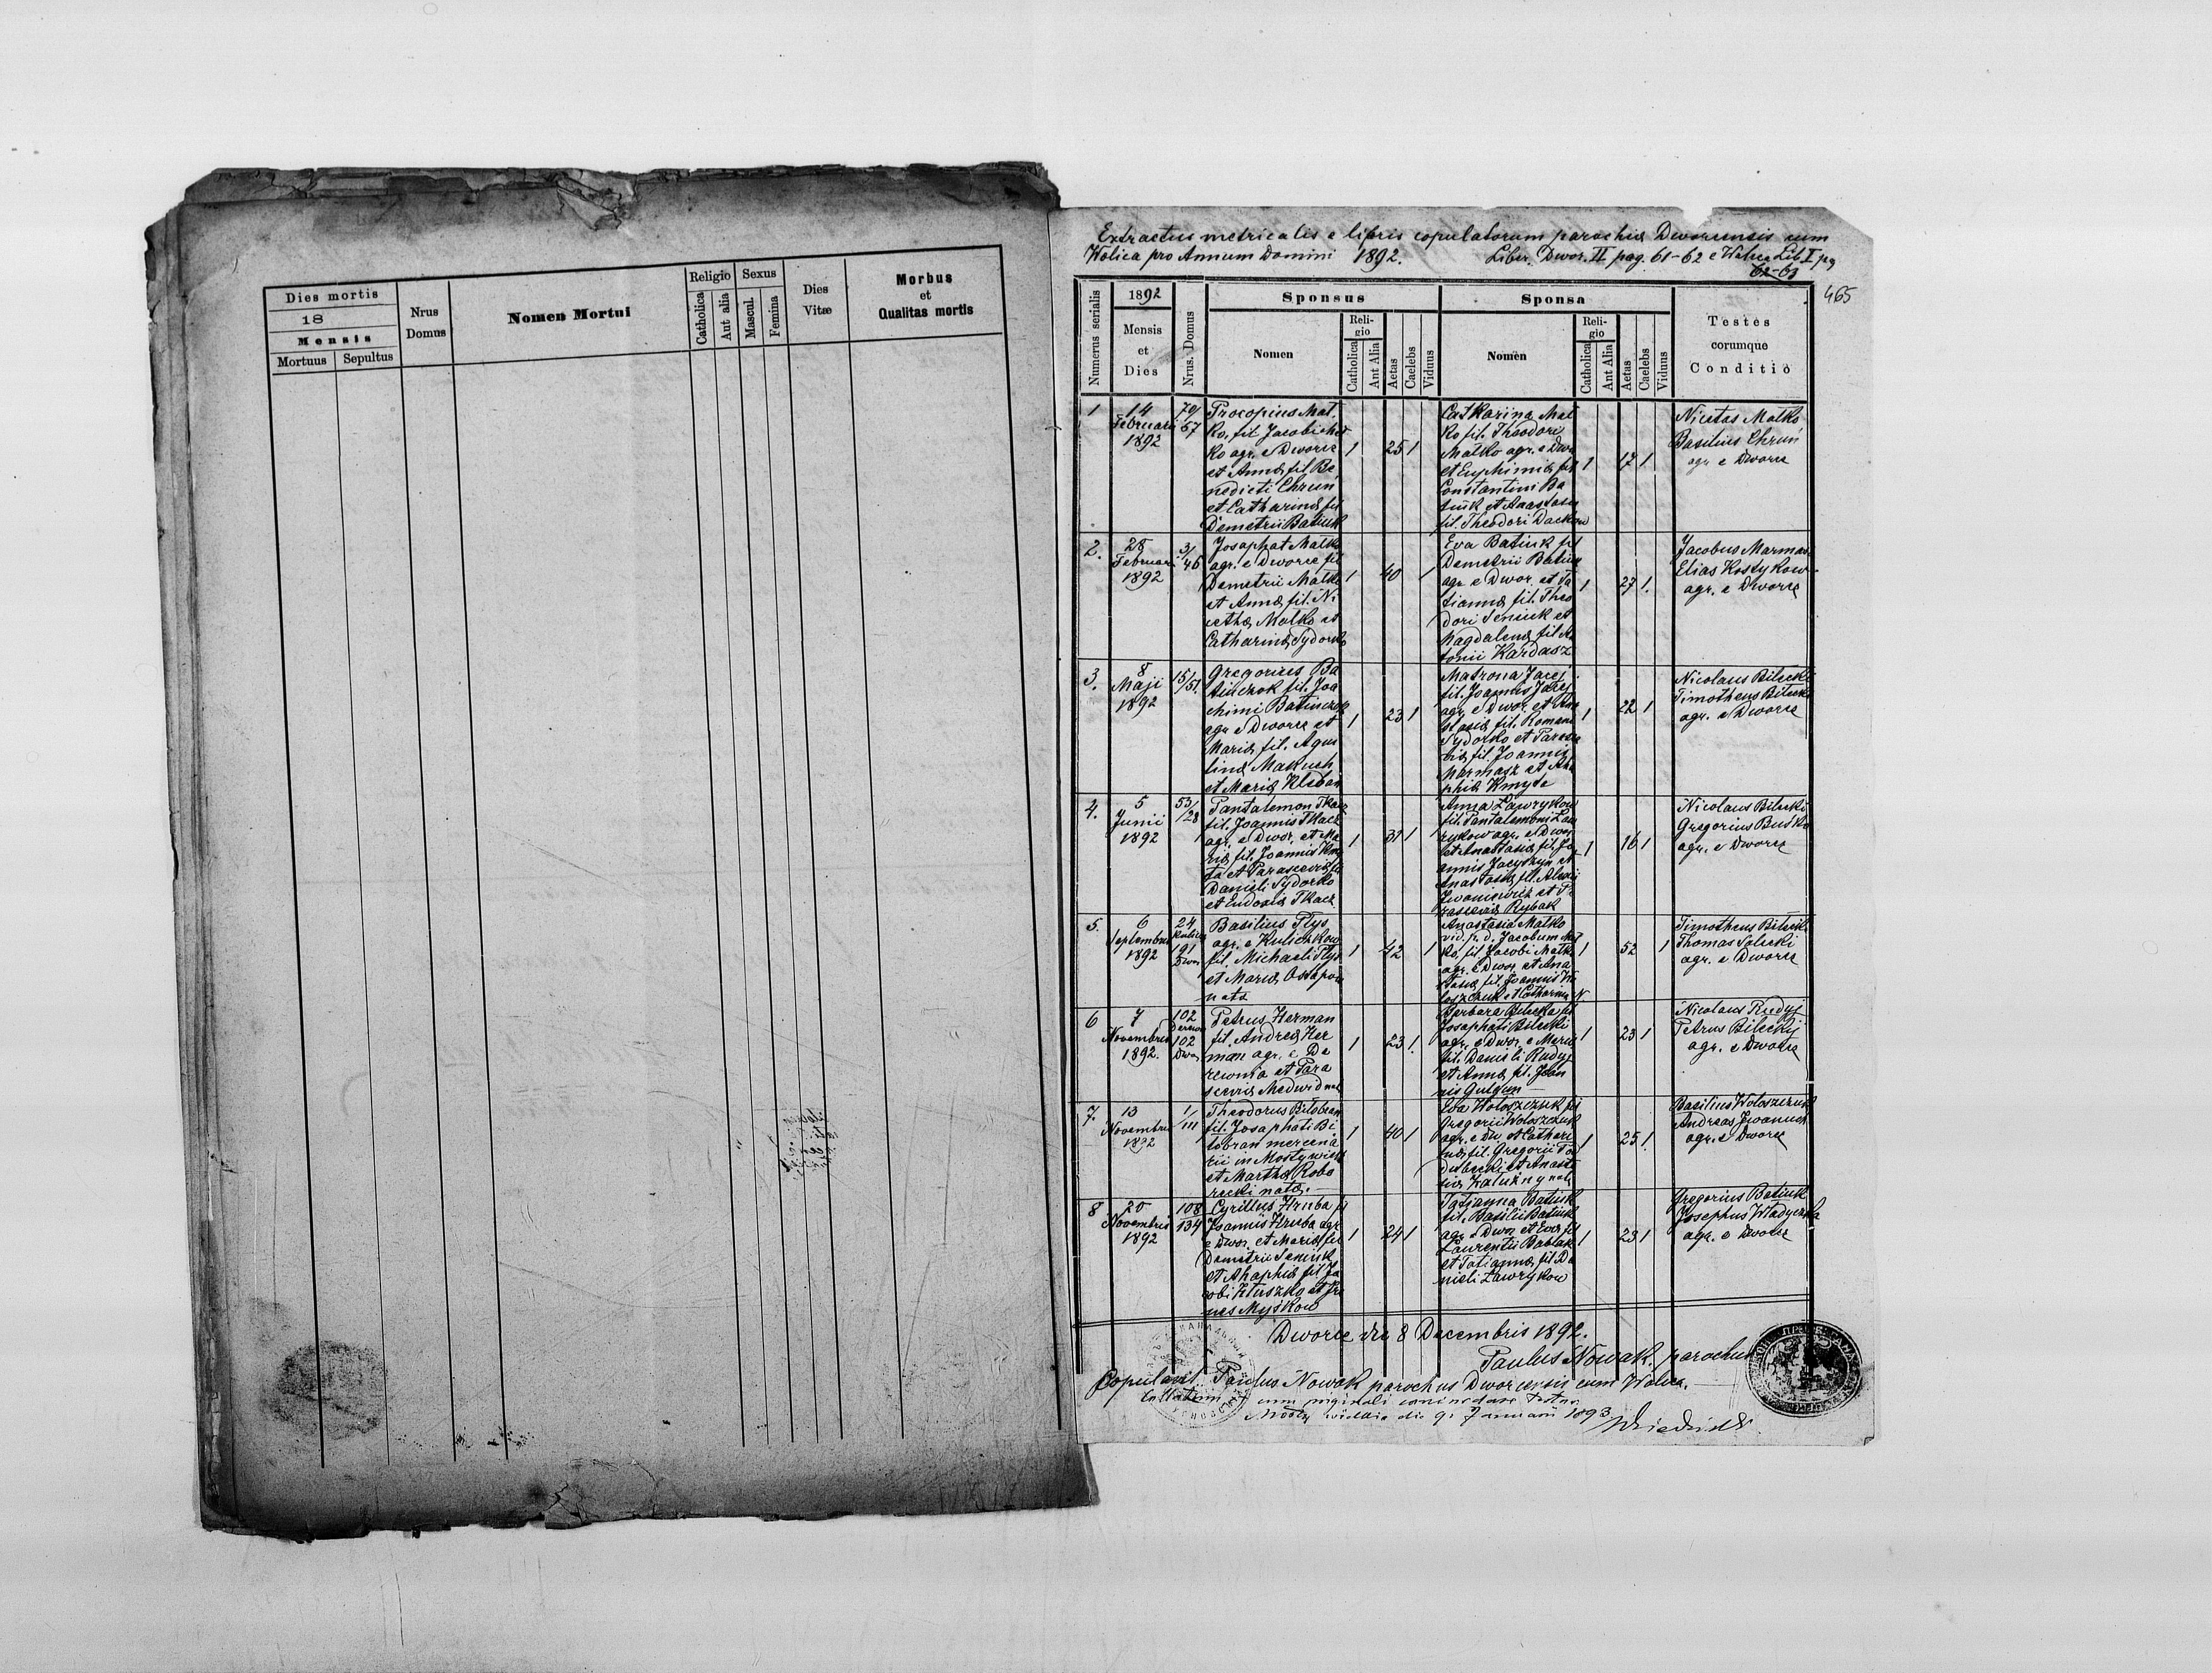 Dies mortis
18
Mensis
Mortuus Sepultus
Nrus Domus
Nomen Mortui
Religio
Catholica
Aut alia
Sexus
Mascul.
Femina
Dies Vitæ
Morbus
et
Qualitas mortis
Extractus metricalis e libris copulatorum parochiæ Dworcensis cum
Wolica pro Annum Domini 1892. Liber Dwor. II pag. 61-62 e Wolica Lib I pg
62-63
465
Numerus serialis
1892
Mensis
et
Dies
Nrus. Domus
Sponsus
Nomen
Religio
Catholica
Ant Alia
Aetas
Caelebs
Viduus
Sponsa
Nomen
Religio
Catholica
Ant Alia
Aetas
Caelebs
Viduus
Testes
corumque
Conditio
1
14
Februarii
1892
70/
67
Procopius Mat-
ko, fil Jacobi Mat
ko agr. e Dworce
et Annæ fil. Be
nedicti Chruń
et Catharinæ fil
Demetrii Batiuk
1 25 1
Catharina Mat
ko fil. Theodori
Matko agr. e Dwor
et Euphimiæ fil
Constantini Ba
tiuk et Anastasiæ
fil. Theodori Dackow
1 17 1
Nicetas Matko
Basilius Chruń
agr. e Dworce
2.
28
Februarii
1892
3/
46
Josaphat Matko
agr. e Dworce fil
Demetrii Matko
et Annæ fil. Ni
cethæ Matko et
Catharinæ Sydorko
1 40 1
Eva Batiuk fil
Demetrii Batiuk
agr. e Dwor. et Ta
tiannæ fil. Theo
dori Seniuk et
Magdalenæ fil An
tonii Kardasz
1 27 1.
Jacobus Marmasz
Elias Kostykow
agr. e Dworce
3.
8
Maji
1892
15/
51.
Gregorius Ba
tinczok fil. Joa
chimi Batinczok
agr. e Dworce et
Mariæ fil. Aqui
linæ Makuch
et Mariæ Kleban
1 23 1
Matrona Jacej
fil. Joannis Jacej
agr. e Dwor. et Ana
stasiæ fil. Romani
Sydorko et Parasce
viæ fil. Joannis
Marmasz et Aha
phiæ Kmyta
1 22 1
Nicolaus Bilecki
Timotheus Bilecki
agr. e Dworce
4.
5
Junii
1892
53/
28
Pantalemon Tkacz
fil. Joannis Tkacz
agr. e Dwor. et Ma
riæ fil. Joannis Kmy
ta et Parasceviæ fil
Danieli Sydorko
et Eudoxiæ Tkacz
1 31 1
Anna Lawrykow
fil. Pantalemoni Law
rykow agr. e Dwor.
et Anastasiæ fil. Jo
annis Jacyszyn et
Anastasiæ fil. Alexii
Iwaniewicz et Pa
rasceviæ Rybak
1 16 1
Nicolaus Bilecki
Gregorius Busko
agr. e Dworce
5.
6
Septembris
1892
24
191
Dwor.
Basilius Plys
agr. e Kulichkow
fil. Michaeli Plys
et Mariæ
nata
1 42 1
Anastasia Matko
vid. p. d. Jacobum Mat
ko, fil. Jacobi Matko
agr. e Dwor. et Ana
stasiæ fil. Joannis Wo
loszczuk et Catharinæ N.
1 52 1
Timotheus Bilecki
Thomas Salecki
agr. e Dworce
6
7
Novembris
1892.
102
102
Dwor.
Petrus Herman
fil. Andreæ Her
man agr. e De
rewnia et Para
sceviæ Medwid nata
1 23 1.
Barbara Bilecka fil
Josaphati Bilecki
agr. e Dwor. e Maria
fil. Danieli Rudyj
et Annæ fil. Joan
nis
1 23 1
Nicolaus Rudyj
Petrus Bileckij
agr. e Dworce
7.
13
Novembris
1892
1/
111
Theodorus Bilobran
fil. Josaphati Bi
lobran mercena
rii in Mosty wielk
et Marthæ Kobo
recki natæ.
1 40 1
Eva Woloszczuk fil
Gregorii Woloszczuk
agr. e Dw. et Cathari
næ fil. Gregorii
et Anasta
siæ natæ
1 25 1.
Basilius Woloszczuk
Andreas Iwaniuch
agr. e Dworce
8
20
Novembris
1892
108
134
Cyrillus Hruba fil
Joannis Hruba agr.
e Dwor. et Mariæ fil
Demetrii Seniuk
et Ahaphiæ fil Ja
cobi Kluszko et Ire
nes Myskow
1 24 1
Tatianna Batiuk
fil. Basilii Batiuk
agr. e Dwor. et Evæ fil
Laurentii Bablak
et Tatiannæ fil Da
nieli Lawrykow
1 23 1
Gregorius Batiuk
Josephus Wladyczka
agr. e Dworce
Dworce die 8 Decembris 1892.
Paulus Nowak, parochus
Copulavit Paulus Nowak parochus Dworcensis cum Wolica.
Collatum cum originali
Mosty wielkie die 9. Januarii 1893